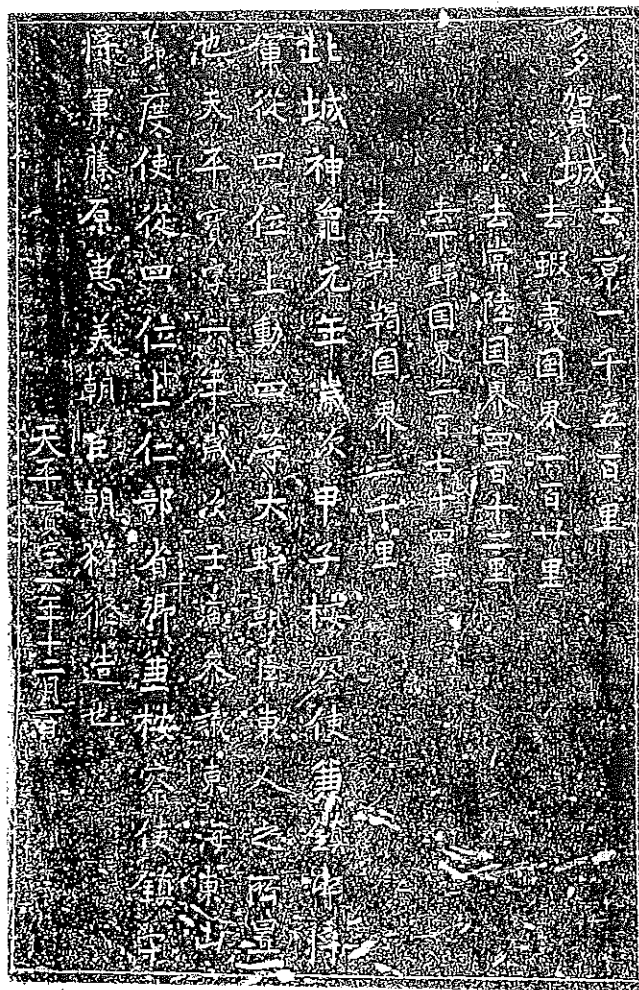 多賀城
去京一千五百里
去蝦夷国界一百廿里
去常陸国界四百十二里
去下野国界二百七十四里
去靺鞨国界三千里
此城神龜元年歳次甲子按察使兼鎮守將
軍從四位上勲四等大野朝臣東人之所置
也天平寳字六年歳次壬寅参議東海東山
節度使從四位上仁部省卿兼按察使鎮守
將軍藤原恵美朝臣朝獦修造也
天平寳字六年十二月一日